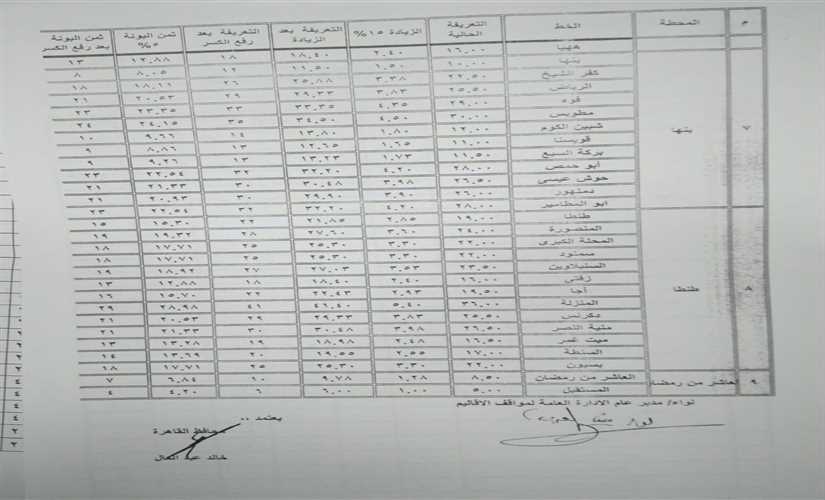 م المحطة الخط التعريفة الحالية الزيادة ١٥% التعريفة بعد الزيادة التعريفة بعد رفع الكسر ثمن البونة ٥% ثمن البونة بعد رفع الكسر
ههيا ١٦.٠٠ ٢.٤٠ ١٨.٤٠ ١٨ ١٢.٨٨ ١٣
٧ بنها بنها ١٠.٠٠ ١.٥٠ ١١.٥٠ ١٢ ٨.٠٥ ٨
كفر الشيخ ٢٢.٥٠ ٣.٣٨ ٢٥.٨٨ ٢٦ ١٨.١١ ١٨
الرياض ٢٥.٥٠ ٣.٨٣ ٢٩.٣٣ ٢٩ ٢٠.٥٣ ٢١
فوه ٢٩.٠٠ ٤.٣٥ ٣٣.٣٥ ٣٣ ٢٣.٣٥ ٢٣
مطوبس ٣٠.٠٠ ٤.٥٠ ٣٤.٥٠ ٣٥ ٢٤.١٥ ٢٤
شبين الكوم ١٢.٠٠ ١.٨٠ ١٣.٨٠ ١٤ ٩.٦٦ ١٠
قويسنا ١١.٠٠ ١.٦٥ ١٢.٦٥ ١٣ ٨.٨٦ ٩
بركة السبع ١١.٥٠ ١.٧٣ ١٣.٢٣ ١٣ ٩.٢٦ ٩
ابو حمص ٢٨.٠٠ ٤.٢٠ ٣٢.٢٠ ٣٢ ٢٢.٥٤ ٢٣
حوش عيسى ٢٦.٥٠ ٣.٩٨ ٣٠.٤٨ ٣٠ ٢١.٣٣ ٢١
دمنهور ٢٦.٠٠ ٣.٩٠ ٢٩.٩٠ ٣٠ ٢٠.٩٣ ٢١
ابو المطامير ٢٨.٠٠ ٤.٢٠ ٣٢.٢٠ ٣٢ ٢٢.٥٤ ٢٣
٨ طنطا طنطا ١٩.٠٠ ٢.٨٥ ٢١.٨٥ ٢٢ ١٥.٣٠ ١٥
المنصورة ٢٤.٠٠ ٣.٦٠ ٢٧.٦٠ ٢٨ ١٩.٣٢ ١٩
المحلة الكبرى ٢٢.٠٠ ٣.٣٠ ٢٥.٣٠ ٢٥ ١٧.٧١ ١٨
سمنود ٢٢.٠٠ ٣.٣٠ ٢٥.٣٠ ٢٥ ١٧.٧١ ١٨
السنبلاوين ٢٣.٥٠ ٣.٥٣ ٢٧.٠٣ ٢٧ ١٨.٩٢ ١٩
زفتى ١٦.٠٠ ٢.٤٠ ١٨.٤٠ ١٨ ١٢.٨٨ ١٣
أجا ١٩.٥٠ ٢.٩٣ ٢٢.٤٣ ٢٢ ١٥.٧٠ ١٦
المنزلة ٣٦.٠٠ ٥.٤٠ ٤١.٤٠ ٤١ ٢٨.٩٨ ٢٩
دكرنس ٢٥.٥٠ ٣.٨٣ ٢٩.٣٣ ٢٩ ٢٠.٥٣ ٢١
منية النصر ٢٦.٥٠ ٣.٩٨ ٣٠.٤٨ ٣٠ ٢١.٣٣ ٢١
ميت غمر ١٦.٥٠ ٢.٤٨ ١٨.٩٨ ١٩ ١٣.٢٨ ١٣
السنطة ١٧.٠٠ ٢.٥٥ ١٩.٥٥ ٢٠ ١٣.٦٩ ١٤
بسيون ٢٢.٠٠ ٣.٣٠ ٢٥.٣٠ ٢٥ ١٧.٧١ ١٨
٩ العاشر من رمضان العاشر من رمضان ٨.٥٠ ١.٢٨ ٩.٧٨ ١٠ ٦.٨٤ ٧
المستقبل ٥.٠٠ ١.٠٠ ٦.٠٠ ٦ ٤.٢٠ ٤
لواء/ مدير عام الادارة العامة لمواقف الاقاليم
يعتمد ..
محافظ القاهرة
خالد عبد العال